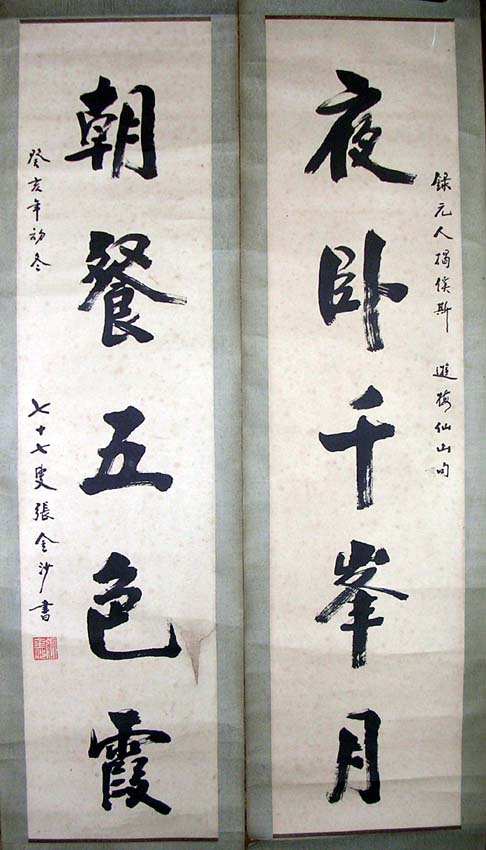 錄元人揭傒斯 遊梅仙山句
夜臥千峯月
朝餐五色霞
癸亥年初冬
七十七叟張金沙書